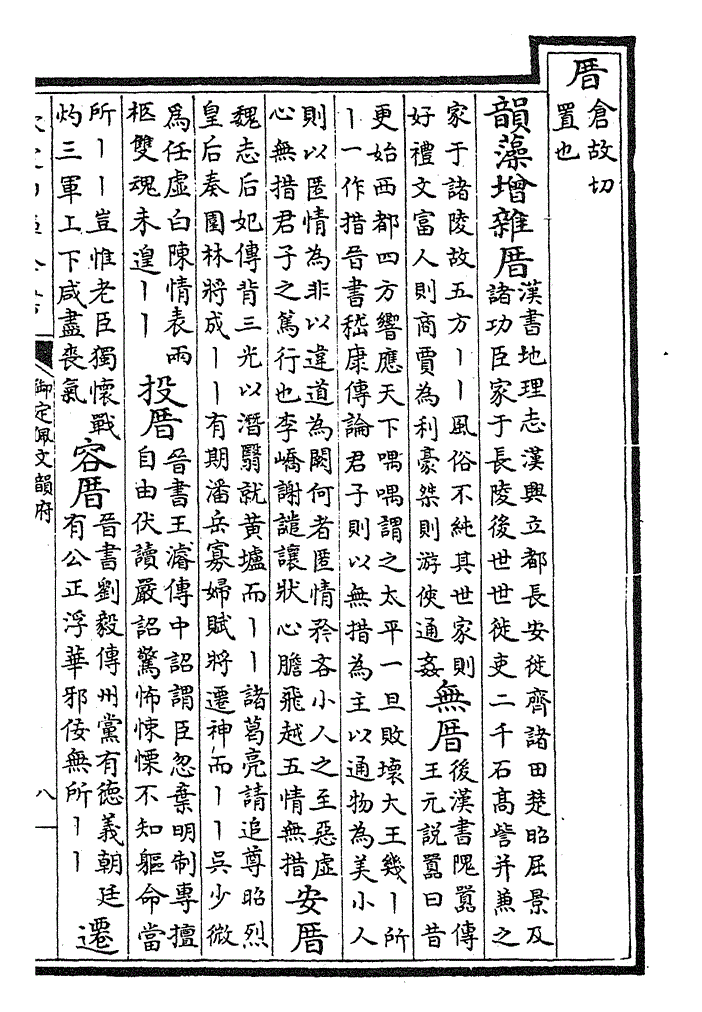 厝倉故切
置也
韻藻增雜厝漢書地理志漢興立都長安徙齊諸田楚昭屈景及
諸功臣家于長陵後世世徙吏二千石高訾并兼之
家于諸陵故五方丨丨風俗不純其世家則
好禮文富人則商賈為利豪桀則游俠通姦無厝後漢書隗囂傳
王元説囂曰昔
更始西都四方響應天下喁喁謂之太平一旦敗壞大王幾丨所
丨一作措晉書嵇康傳論君子則以無措為主以通物為美小人
則以匿情為非以違道為闕何者匿情矜吝小人之至惡虛
心無措君子之篤行也李嶠謝譴讓狀心膽飛越五情無措安厝
魏志后妃傳背三光以潛翳就黄壚而丨丨諸葛亮請追尊昭烈
皇后奏園林將成丨丨有期潘岳寡婦賦將遷神而丨丨吳少微
為任虛白陳情表兩
柩雙魂未遑丨丨投厝晉書王濬傳中詔謂臣忽棄明制專擅
自由伏讀嚴詔驚怖悚慄不知軀命當
所丨丨豈惟老臣獨懷戰
灼三軍上下咸盡喪氣容厝晉書劉毅傳州黨有德義朝廷
有公正浮華邪佞無所丨丨遷
御定佩文韻府
八